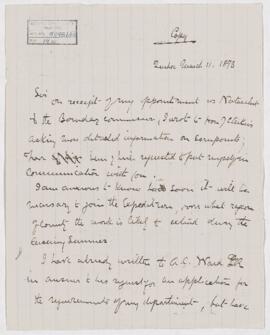 Copy
Quebec March 11, 1893
Sir on receipt of my appointment as Naturalist
of the Boundary commission, I wrote to Hon J Costigan
asking more detailed information on
I have been requested to put myself in
communication with you.
I am anxious to know how soon it will be
necessary to join the Expedition, over what region
of country the work is likely to extend during the
ensuing Summer
I have already written to A.G. Ward
in answer to his request for an application for
the requirements of my department, but have